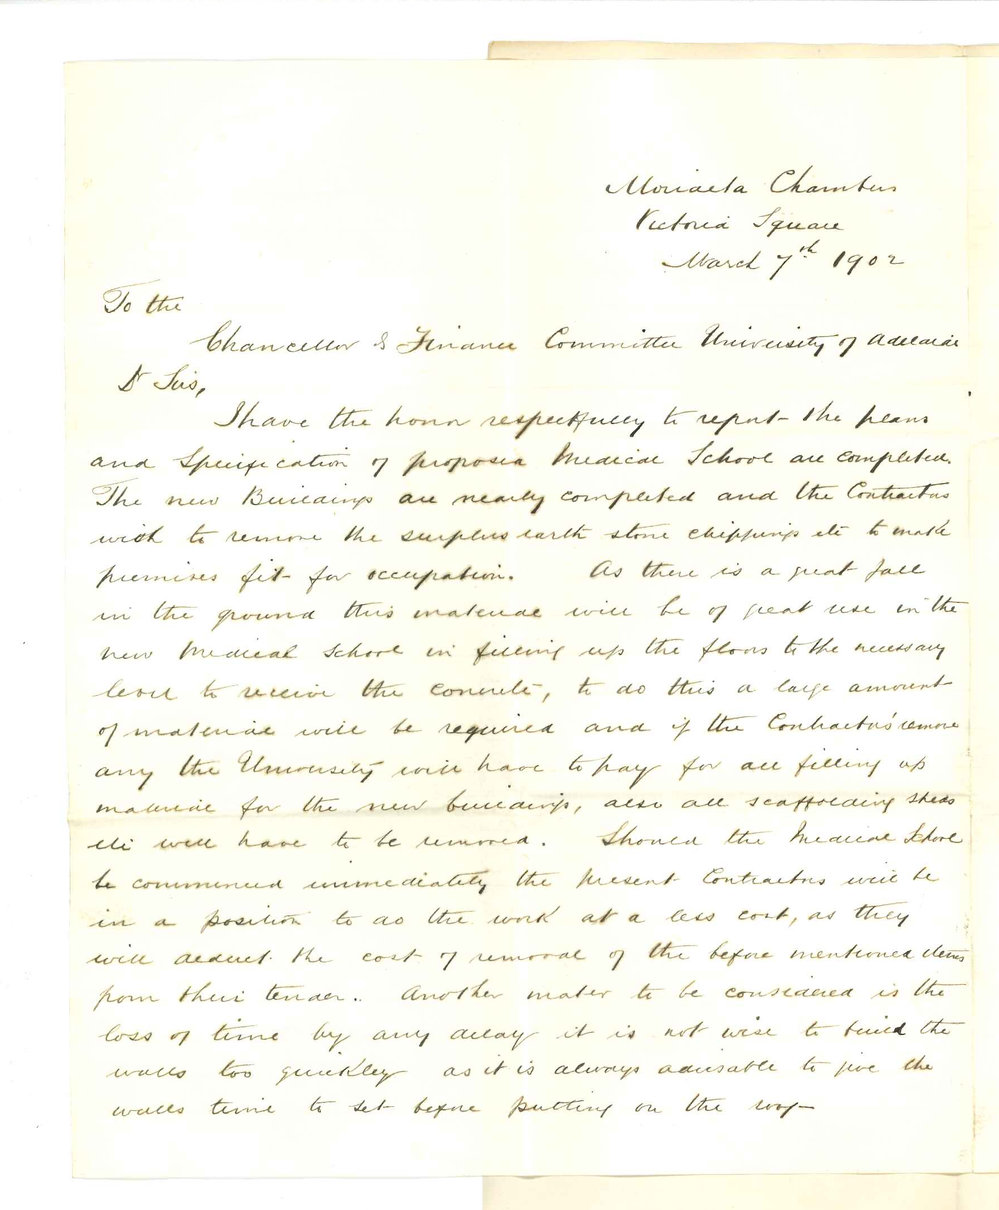 Morialta Chambers
Victoria Square
March 7th 1902
To the
Chancellor & Finance Committee University of Adelaide
Dr Sirs,
I have the honor respectfully to report the plans
and Specification of proposed Medical School are completed.
The new Buildings are nearly completed and the Contractors
wish to remove the surplus earth stone chippings etc to make
premises fit for occupation. As there is a great fall
in the ground this material will be of great use in the
new Medical School in filling up the floors to the necessary
level to receive the concrete, to do this a large amount
of material will be required and if the Contractors' remove
any the University will have to pay for all filling up
material for the new buildings, also all scaffolding sheds
etc will have to be removed. Should the Medical School
be commenced immediately the present Contractors will be
in a position to do the work at a less cost, as they
will deduct the cost of removal of the before mentioned items
from their tender.. Another mater to be considered is the
loss of time by any delay it is not wise to build the
walls too quickley as it is always advisable to give the
walls time to set before putting on the roof